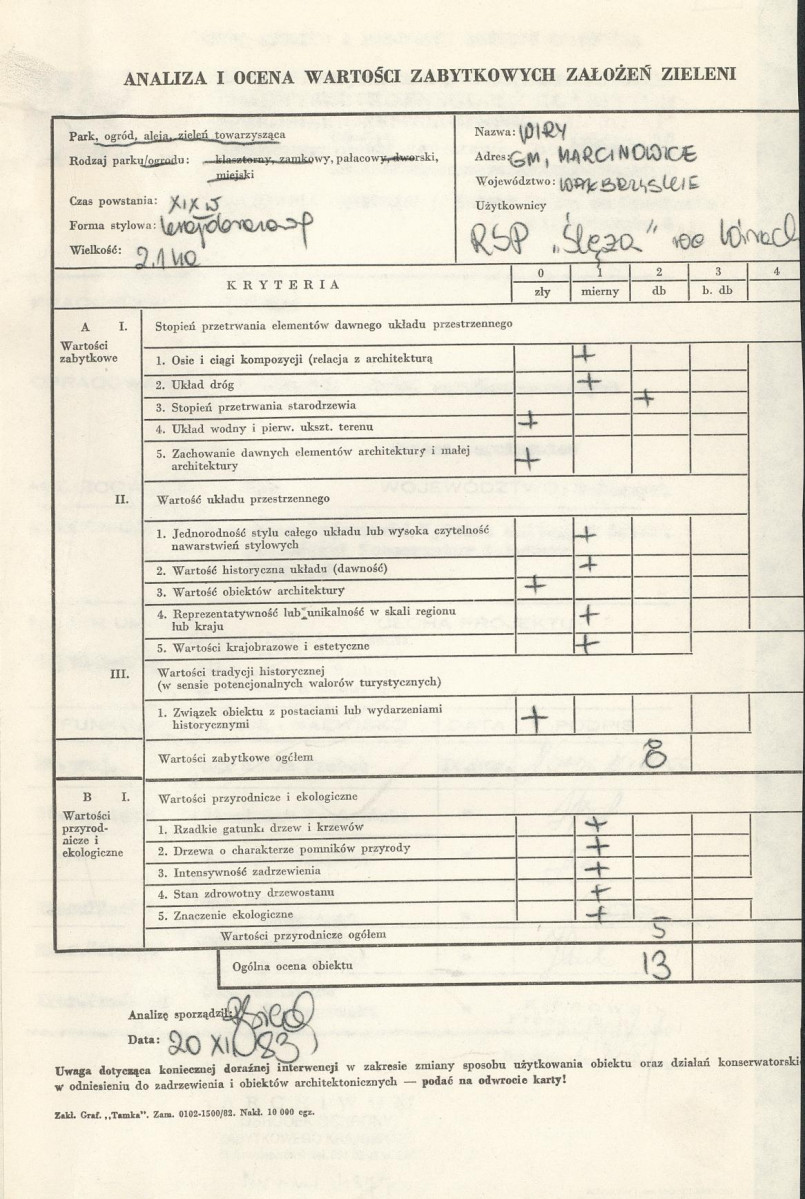 ANALIZA I OCENA WARTOŚCI ZABYTKOWYCH ZAŁOŻEŃ ZIELENI
Park, ogród, aleja, zieleń towarzysząca
Rodzaj parku/ogrodu: klasztorny, zamkowy, pałacowy, dworski,
miejski
Czas powstania: XIX w
Forma stylowa: krajobrazowy
Wielkość: 2,1 ha
Nazwa: WIRY
Adres: GM, MARCINOWICE
Województwo: WAŁBRZYSKIE
Użytkownicy
RSP „Ślęza" we Wirach
KRYTERIA
0 1 2 3 4
zły mierny db b. db
A I. Stopień przetrwania elementów dawnego układu przestrzennego
Wartości
zabytkowe
1. Osie i ciągi kompozycji (relacja z architekturą +
2. Układ dróg +
3. Stopień przetrwania starodrzewia +
4. Układ wodny i pierw. ukszt. terenu +
5. Zachowanie dawnych elementów architektury i małej
architektury +
II. Wartość układu przestrzennego
1. Jednorodność stylu całego układu lub wysoka czytelność
nawarstwień stylowych +
2. Wartość historyczna układu (dawność) +
3. Wartość obiektów architektury +
4. Reprezentatywność lub unikalność w skali regionu
lub kraju +
5. Wartości krajobrazowe i estetyczne +
III. Wartości tradycji historycznej
(w sensie potencjonalnych walorów turystycznych)
1. Związek obiektu z postaciami lub wydarzeniami
historycznymi +
Wartości zabytkowe ogółem 8
B I. Wartości przyrodnicze i ekologiczne
Wartości
przyrod-
nicze i
ekologiczne
1. Rzadkie gatunki drzew i krzewów +
2. Drzewa o charakterze pomników przyrody +
3. Intensywność zadrzewienia +
4. Stan zdrowotny drzewostanu +
5. Znaczenie ekologiczne +
Wartości przyrodnicze ogółem 5
Ogólna ocena obiektu 13
Analizę sporządził:
Data: 20 XI 83
Uwaga dotycząca koniecznej doraźnej interwencji w zakresie zmiany sposobu użytkowania obiektu oraz działań konserwatorski
w odniesieniu do zadrzewienia i obiektów architektonicznych — podać na odwrocie karty!
Zakł. Graf. „Tamka". Zam. 0102-1500/82. Nakł. 10 000 egz.